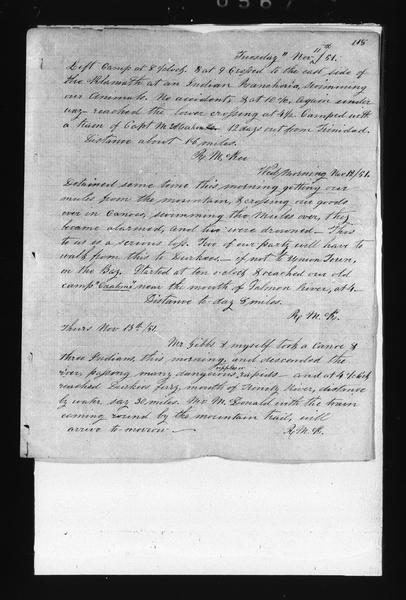 115
Tuesday Nov 11th /51.
Left Camp at 8 o'clock & at 9 Crossed to the east side of
the Klamath at an Indian Rancharia, swimming
our animals. No accidents & at 10 1/2 again under
way reached the lower crossing at 4 1/2. Camped with
a train of Capt 12 days out from Trinidad.
Distance about 16 miles.
R. McKee
Wed. Morning Nov 12/51.
Detained some time this morning getting our
mules from the mountain, & crossing our goods
over in Canoes, swimming the Mules over, they
became alarmed, and two were drowned — This
to us is a serious loss. Two of our party will have to
walk from this to Durkees, — if not to Union Town,
on the Bay. Started at ten o'clock & reached our old
camp near the mouth of Salmon River, at 4.
Distance to day 8 miles.
R. McK.
Thurs Nov 13th /51.
Mr Gibbs & myself took a Canoe &
three Indians, this morning, and descended the
river, passing many dangerous rapids — and at 4 o'clk
reached Durkees ferry, mouth of Trinity River, distance
by water say 30 miles. Mr McDonald with the train
coming round by the mountain trail, will
arrive to-morrow —
R. McK.